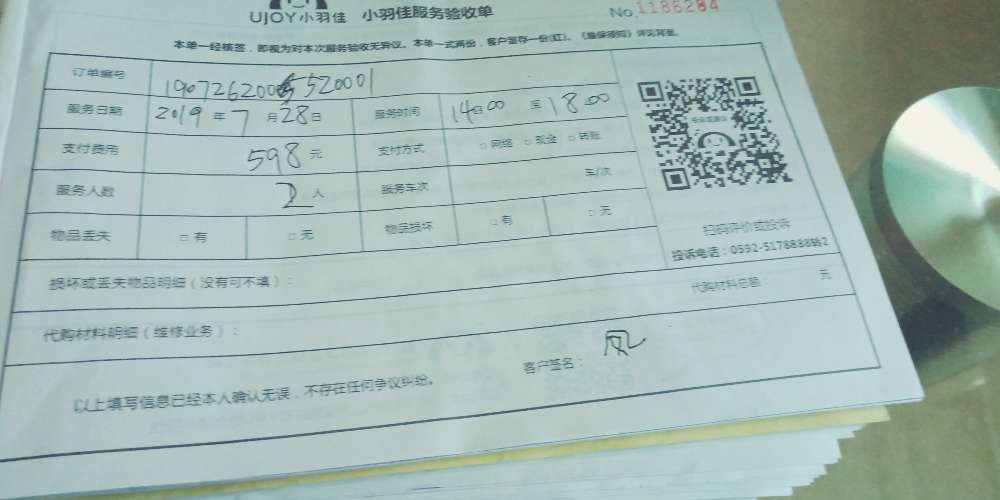 UJOY小羽佳 小羽佳服务验收单 No.1186284
本单一经核签，即视为对本次服务验收无异议。本单一式两份，客户留存一份(红)。《最保须知》详见背面。
订单编号
服务日期 2019年7月28日 服务时间 14:00至18:00
支付费用 598元 支付方式 □网络 □现金 □转账
服务人数 2人 服务车次 车/次
物品丢失 □有 □无 物品损坏 □有 □无
扫码评价或投诉
投诉电话：0592-5178888转2
损坏或丢失物品明细（没有可不填）：
代购材料明细（维修业务）： 代购材料总额： 元
以上填写信息已经本人确认无误，不存在任何争议纠纷。 客户签名：